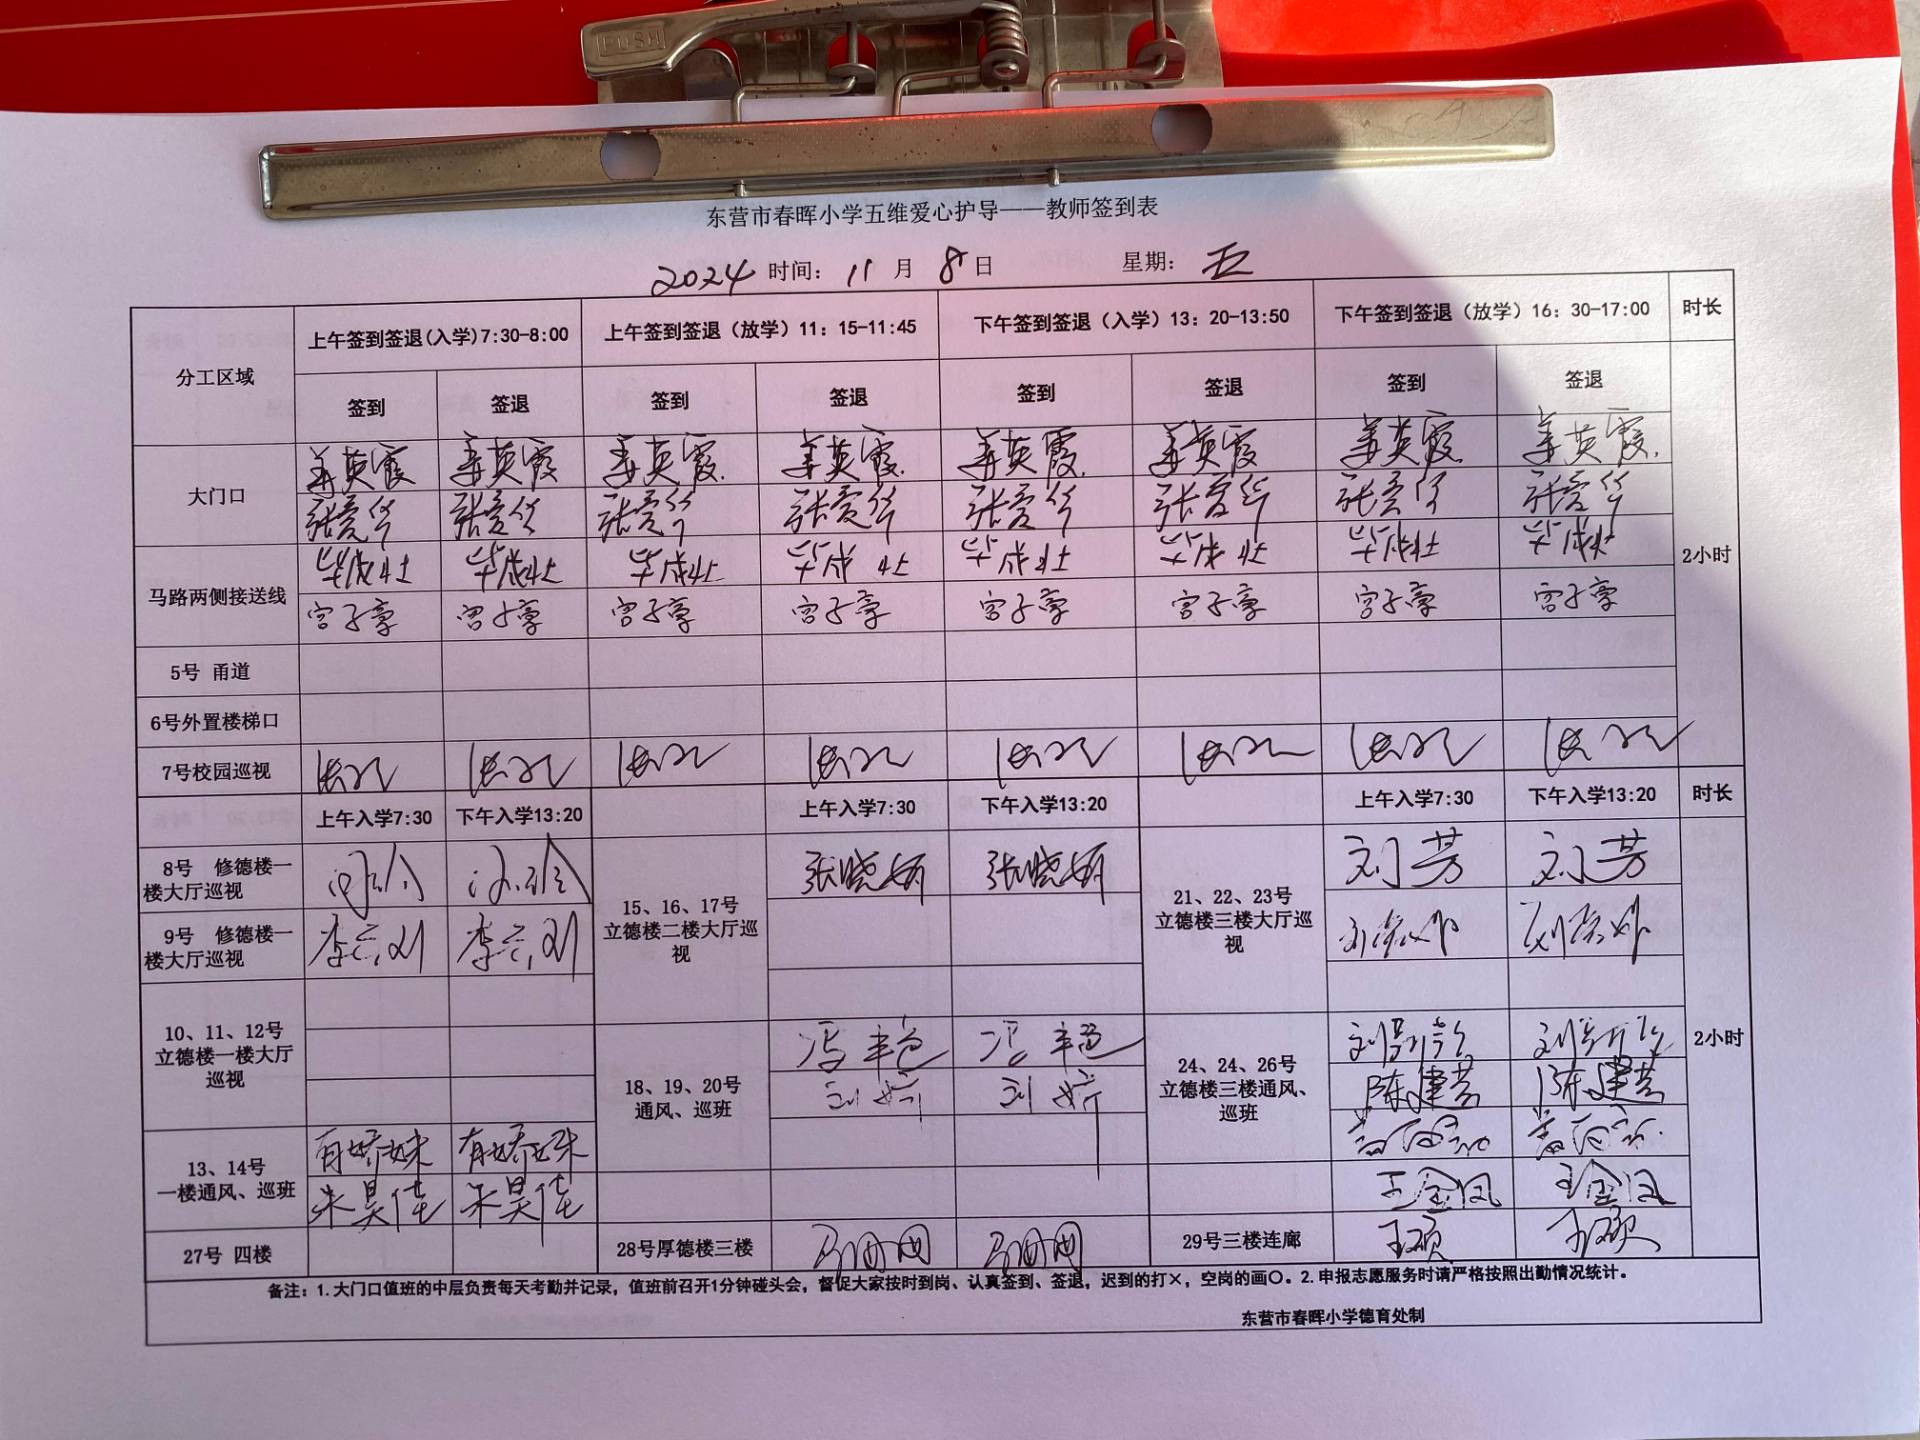 PUSH
东营市春晖小学五维爱心护导——教师签到表
2024 时间： 11 月 8 日 星期： 五
分工区域 上午签到签退(入学)7:30-8:00 上午签到签退（放学）11：15-11:45 下午签到签退（入学）13：20-13:50 下午签到签退（放学）16：30-17:00 时长
签到 签退 签到 签退 签到 签退 签到 签退
大门口 姜英霞 姜英霞 姜英霞 姜英霞 姜英霞 姜英霞 姜英霞 姜英霞
张爱华 张爱华 张爱华 张爱华 张爱华 张爱华 张爱华 张爱华
马路两侧接送线 毕成壮 毕成壮 毕成壮 毕成壮 毕成壮 毕成壮 毕成壮 毕成壮
宫子章 宫子章 宫子章 宫子章 宫子章 宫子章 宫子章 宫子章
2小时
5号 甬道
6号外置楼梯口
7号校园巡视
上午入学7:30 下午入学13:20 上午入学7:30 下午入学13:20 上午入学7:30 下午入学13:20 时长
8号 修德楼一
楼大厅巡视
9号 修德楼一
楼大厅巡视
10、11、12号
立德楼一楼大厅
巡视
13、14号
一楼通风、巡班
有娇妹 有娇妹
朱昊佳 朱昊佳
27号 四楼
15、16、17号
立德楼二楼大厅巡
视
张晓娟 张晓娟
18、19、20号
通风、巡班
冯丰色 冯丰色
刘婷 刘婷
28号厚德楼三楼
21、22、23号
立德楼三楼大厅巡
视
刘芳 刘芳
24、24、26号
立德楼三楼通风、
巡班
陈建芸 陈建芸
王金凤 王金凤
29号三楼连廊 王硕 王硕
2小时
备注：1.大门口值班的中层负责每天考勤并记录，值班前召开1分钟碰头会，督促大家按时到岗、认真签到、签退，迟到的打×，空岗的画○。2.申报志愿服务时请严格按照出勤情况统计。
东营市春晖小学德育处制